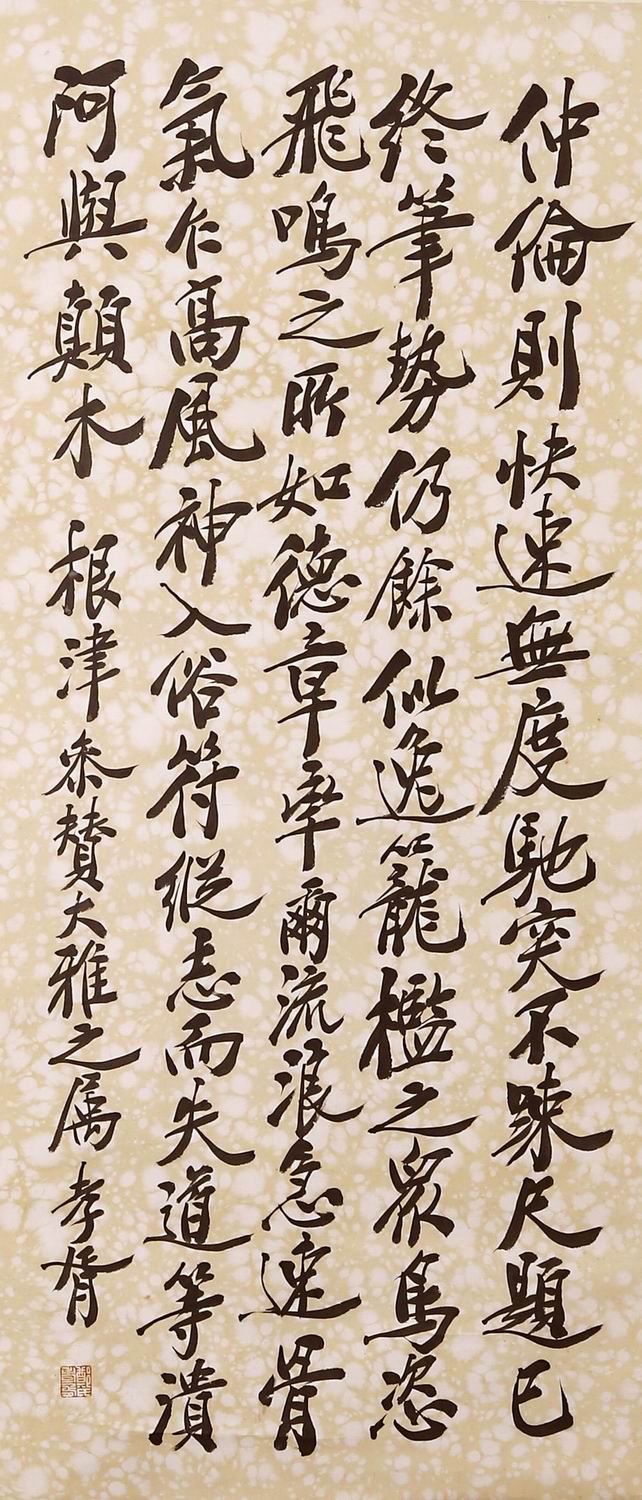 仲倫則快速無度馳突不踈尺題已
終筆勢仍餘似逸籠檻之衆鳥恣
飛鳴之所如德章率爾流浪急速骨
氣乍高風神入俗符縱志而失道等潰
河與顛木 根津參贊大雅之属 孝胥